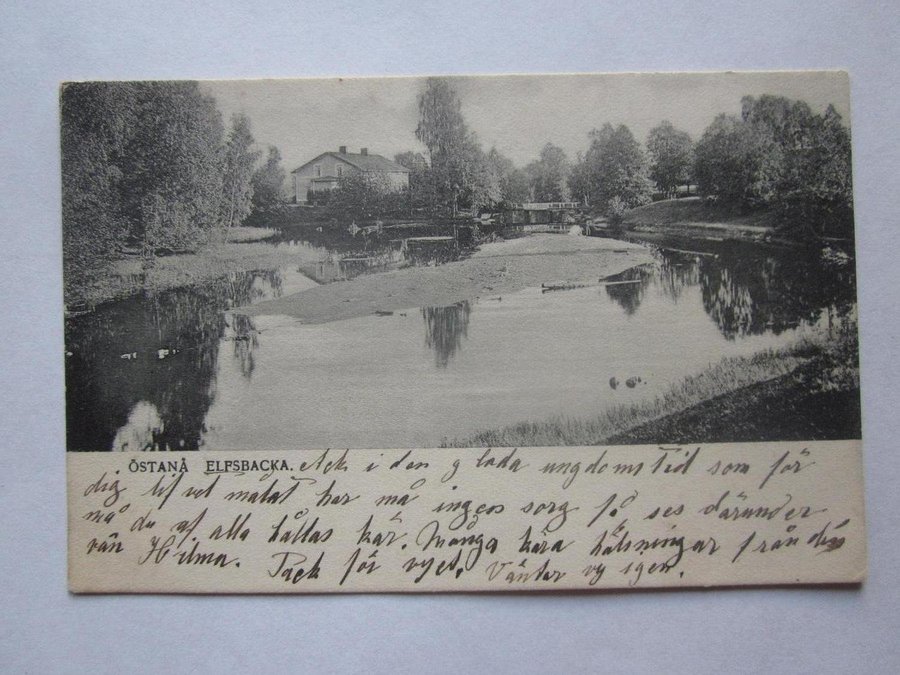 ÖSTANÅ ELFSBACKA. Ack i den glada ungdomstid som för
dig lifvet målat har må ingen sorg få ses därunder
må du af alla hållas kär. Många kära hälsningar från din
vän Hilma. Tack för vyet. Väntar vy igen.